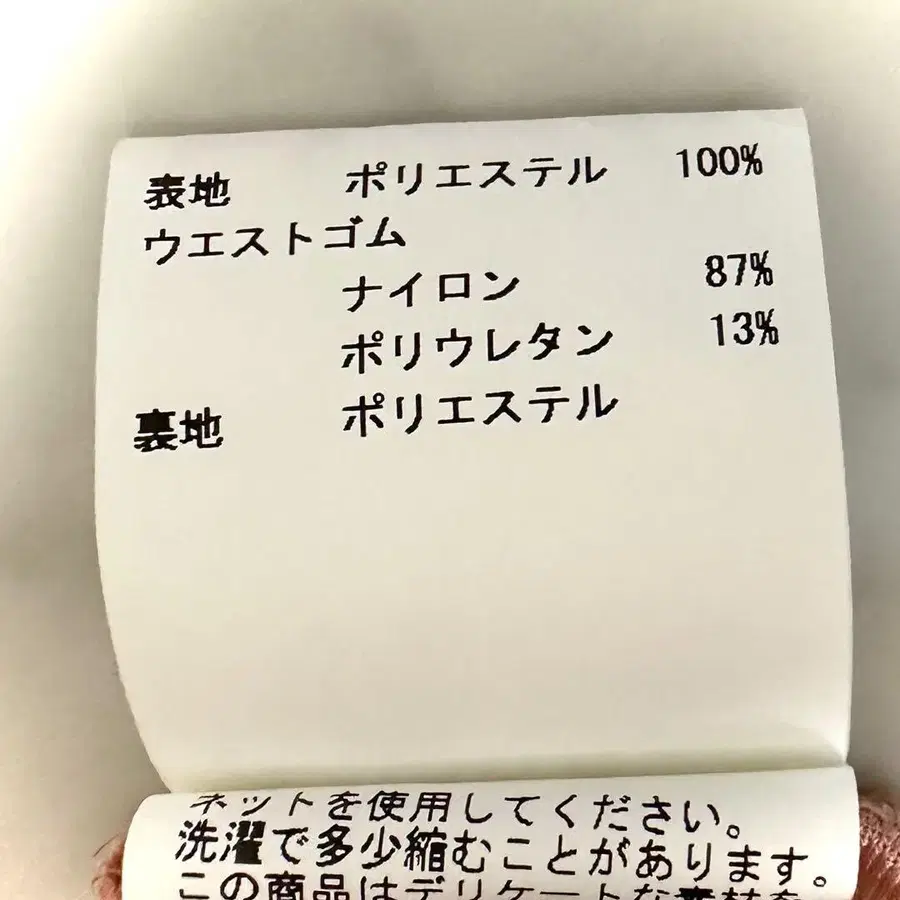 表地 ポリエステル 100%
ウエストゴム
ナイロン 87%
ポリウレタン 13%
裏地 ポリエステル
ネットを使用してください。
洗濯で多少縮むことがあります。
この商品はデリケートな素材を